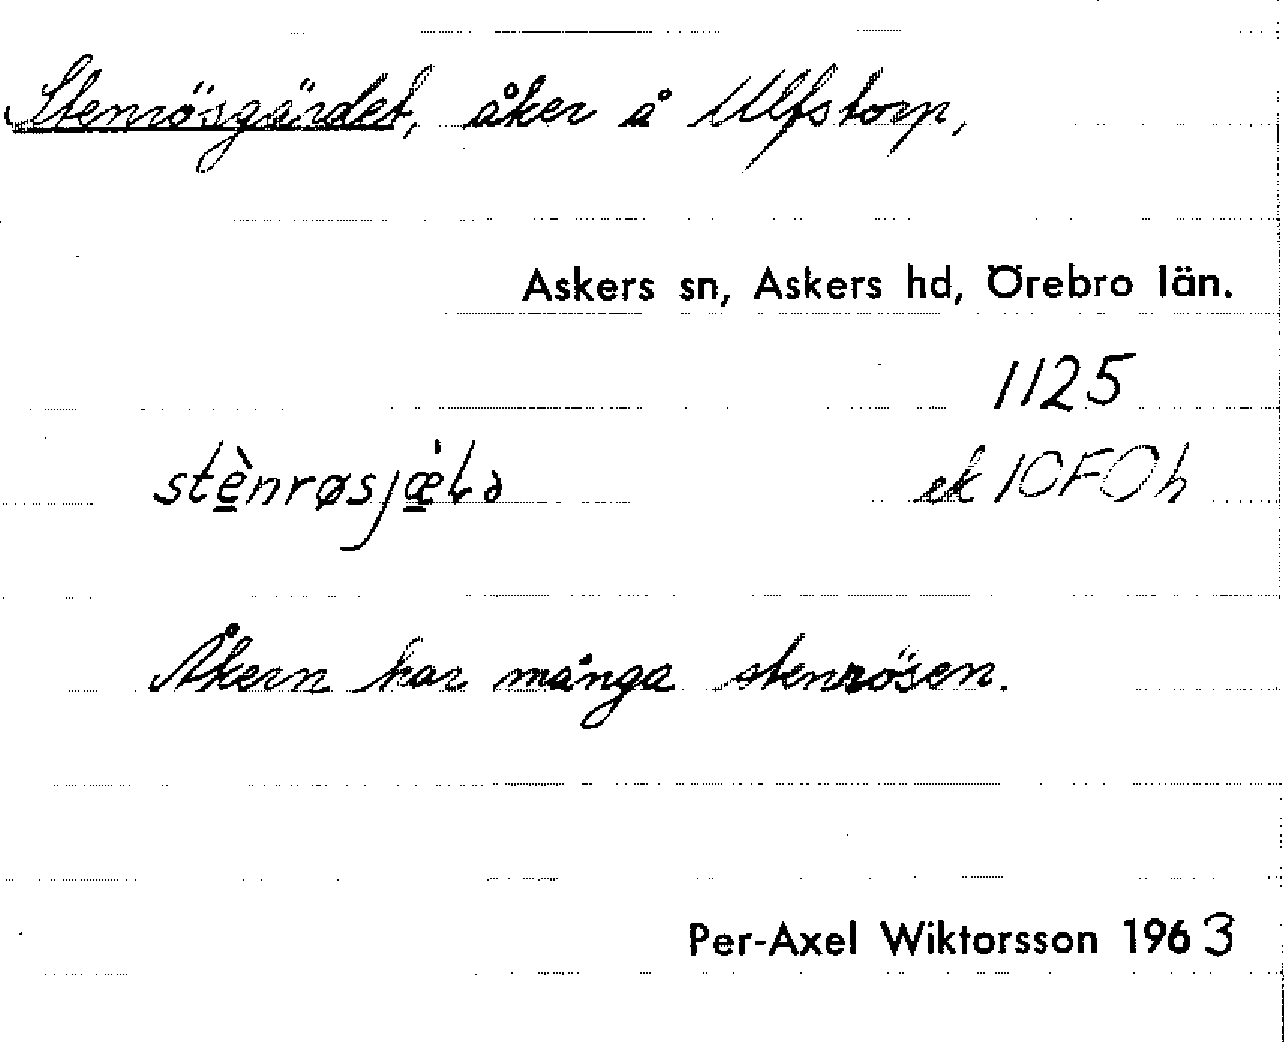 Stenrösgärdet, åker å Ulfstorp,
Askers sn, Askers hd, Örebro län.
1125
stènrøsjæ̀Lə ek 10F0h
Åkern har många stenrösen.
Per-Axel Wiktorsson 1963